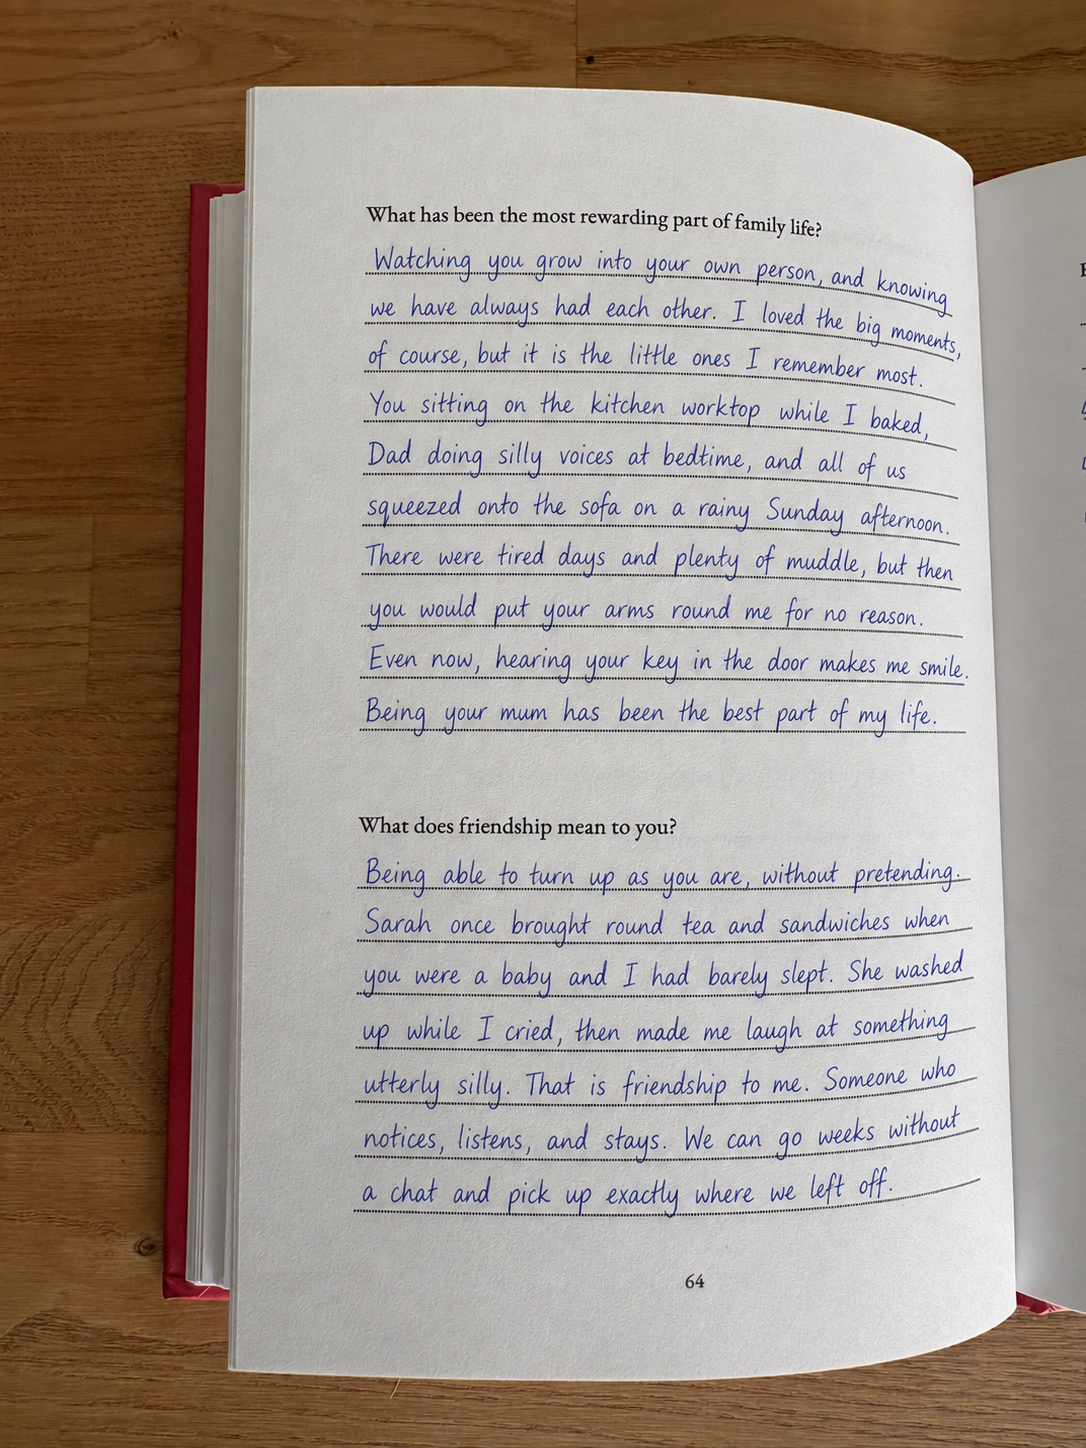 What has been the most rewarding part of family life?
Watching you grow into your own person, and knowing
we have always had each other. I loved the big moments,
of course, but it is the little ones I remember most.
You sitting on the kitchen worktop while I baked,
Dad doing silly voices at bedtime, and all of us
squeezed onto the sofa on a rainy Sunday afternoon.
There were tired days and plenty of muddle, but then
you would put your arms round me for no reason.
Even now, hearing your key in the door makes me smile.
Being your mum has been the best part of my life.
What does friendship mean to you?
Being able to turn up as you are, without pretending.
Sarah once brought round tea and sandwiches when
you were a baby and I had barely slept. She washed
up while I cried, then made me laugh at something
utterly silly. That is friendship to me. Someone who
notices, listens, and stays. We can go weeks without
a chat and pick up exactly where we left off.
64